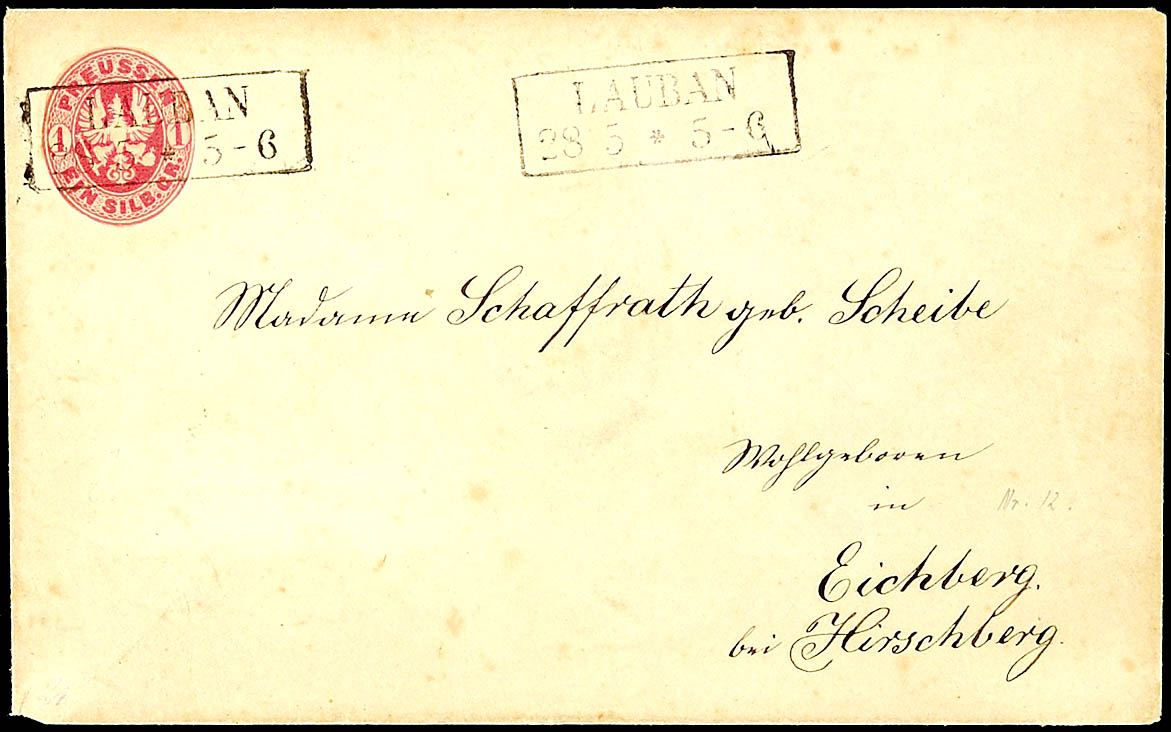 PREUSSEN
1 1
EIN SILB. GR.
LAUBAN
5-6
LAUBAN
28 5 * 5-6
Madame Schaffrath geb. Scheibe
Wohlgeboren
in
Nr. 12.
Eichberg.
bei Hirschberg.